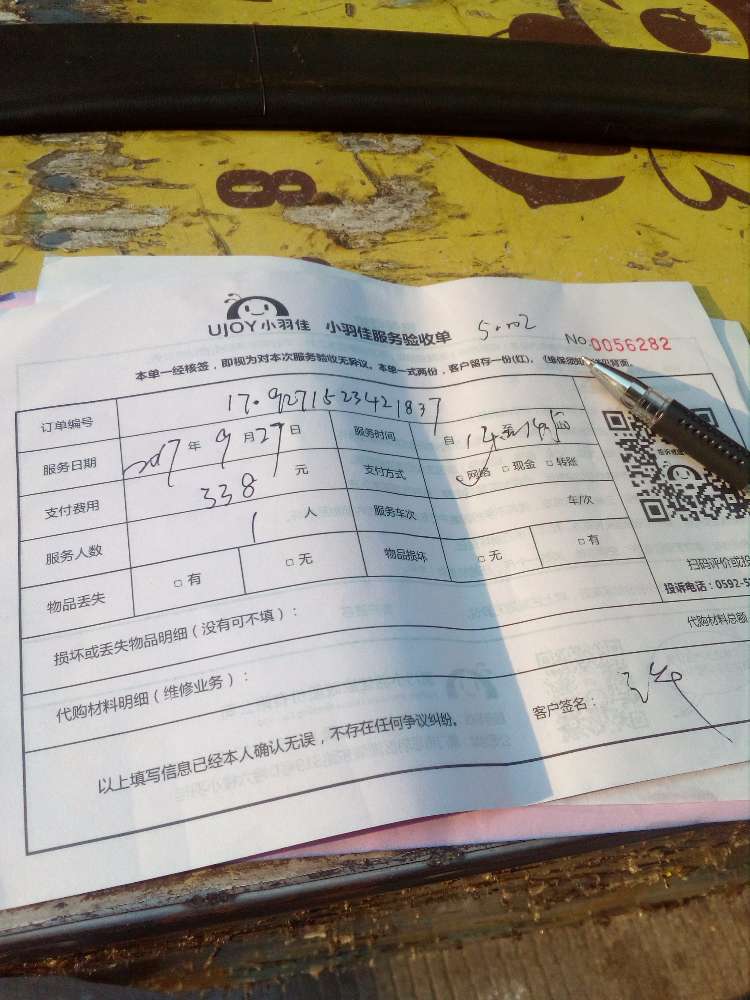 8
UJOY小羽佳 小羽佳服务验收单 5.002 No.0056282
本单一经核签，即视为对本次服务验收无异议。本单一式两份，客户留存一份(红)。
订单编号 17.09271523421837
服务日期 2017年9月27日 服务时间 自14至
支付费用 338元 支付方式 网络 □现金 □转账
服务人数 1人 服务车次 车/次
物品丢失 □有 □无 物品损坏 □无 □有
扫码评价或投
投诉电话：0592-5
损坏或丢失物品明细（没有可不填）：
代购材料明细（维修业务）： 代购材料总额
以上填写信息已经本人确认无误，不存在任何争议纠纷。 客户签名：